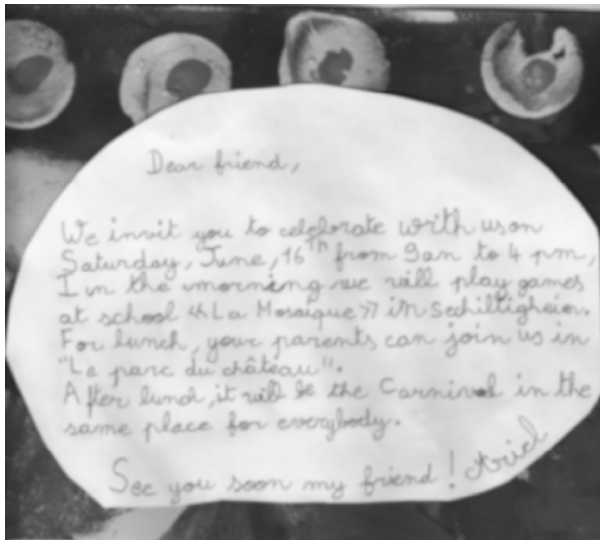 Dear friend,
We invit you to celebrate with us on
Saturday, June, 16Th from 9am to 4 pm,
In the morning we will play games
at school «La Mosaïque» in Schiltigheim.
For lunch, your parents can join us in
"Le parc du château".
After lunch, it will be the Carnival in the
same place for everybody.
See you soon my friend! Ariel